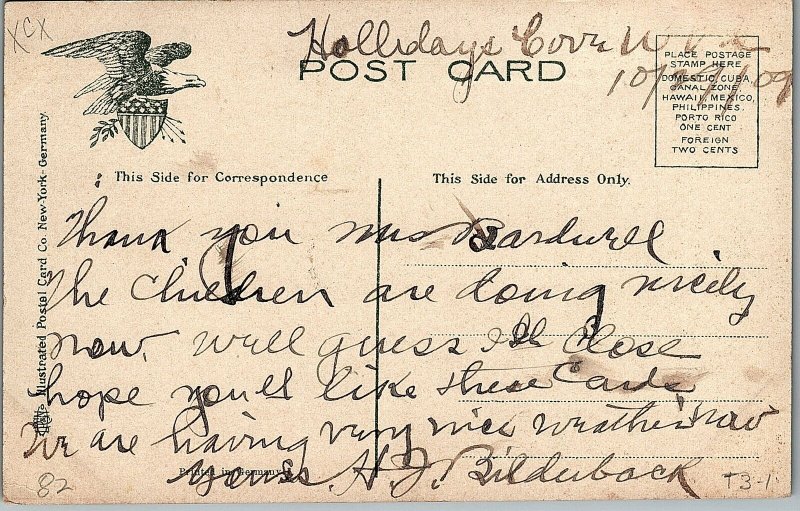 XCX
Hollidays Cove W. Va
10/ /09
POST CARD
PLACE POSTAGE
STAMP HERE
DOMESTIC, CUBA,
CANAL ZONE,
HAWAII, MEXICO,
PHILIPPINES,
PORTO RICO
ONE CENT
FOREIGN
TWO CENTS
This Side for Correspondence
This Side for Address Only.
Illustrated Postal Card Co. New-York- Germany.
Thank you Mrs Bardwell.
The Children are doing nicely
now. well guess Ill Close
hope you'll like these Cards
We are having very nice weather now
Printed in Germany
yours. H. J. Bilderback
82
T3-1